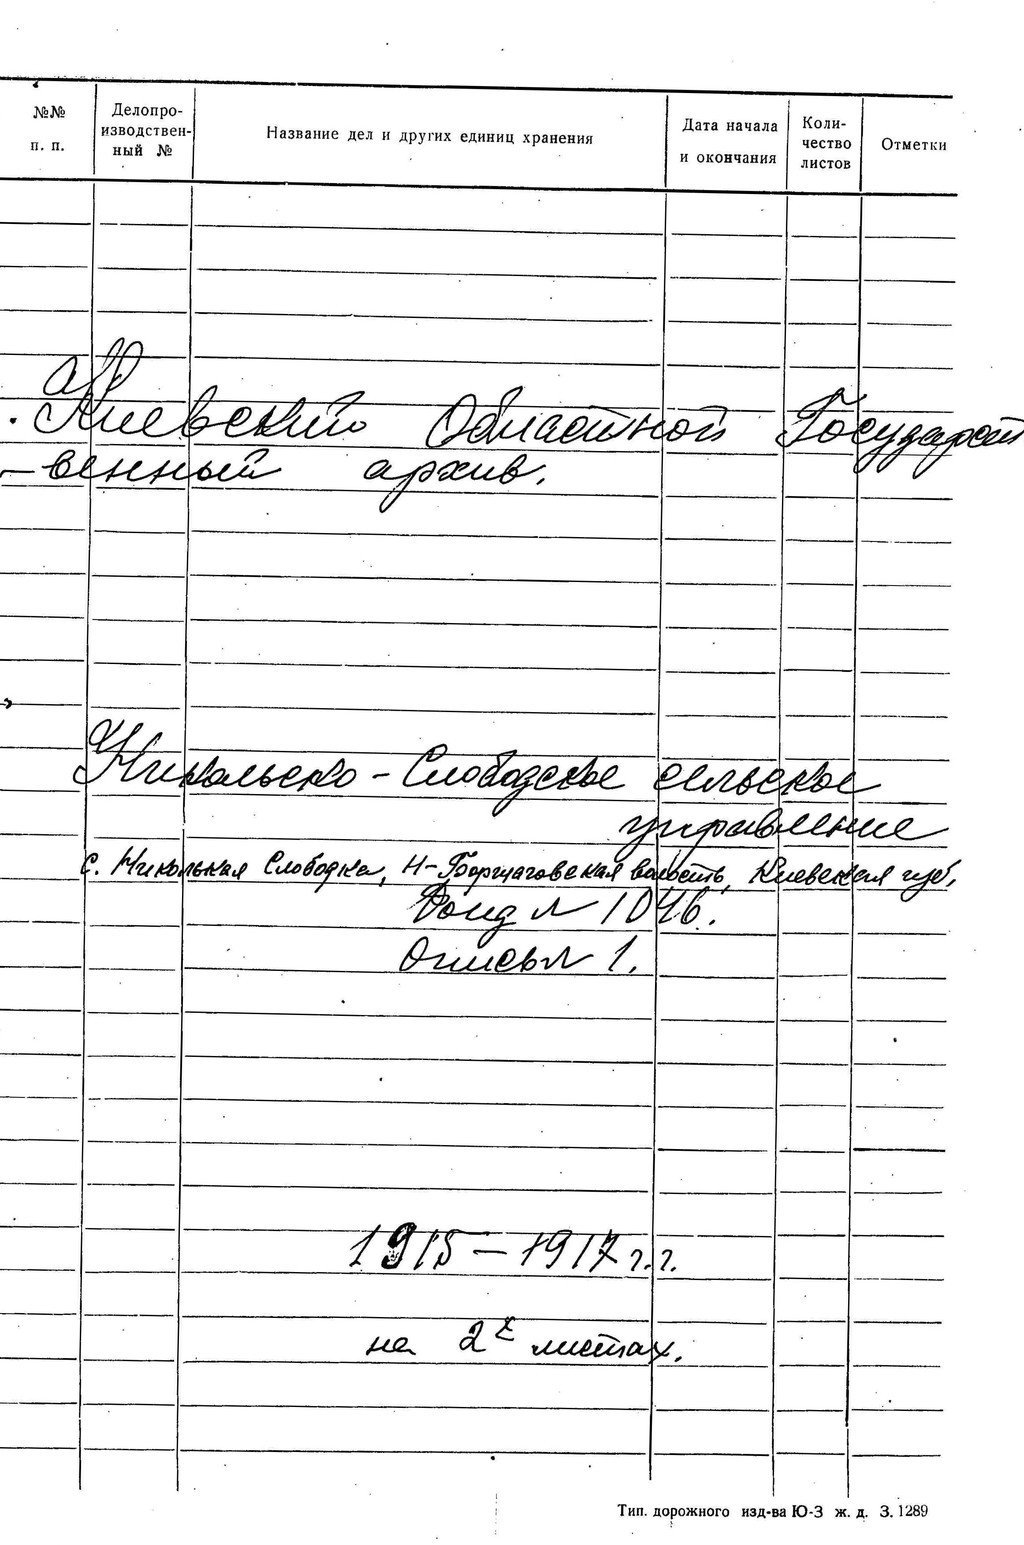 №№ п. п.
Делопро-
изводствен-
ный №
Название дел и других единиц хранения
Дата начала
и окончания
Коли-
чество
листов
Отметки
Киевский Областной Государст
-венный архив.
Никольско-Слободское сельское
управление
с. Никольская Слободка, Н-Борщаговская волость, Киевская губ.
Фонд № 1046.
Опись № 1.
1915-1917 г.г.
на 2х листах.
Тип. дорожного изд-ва Ю-З ж. д. З. 1289